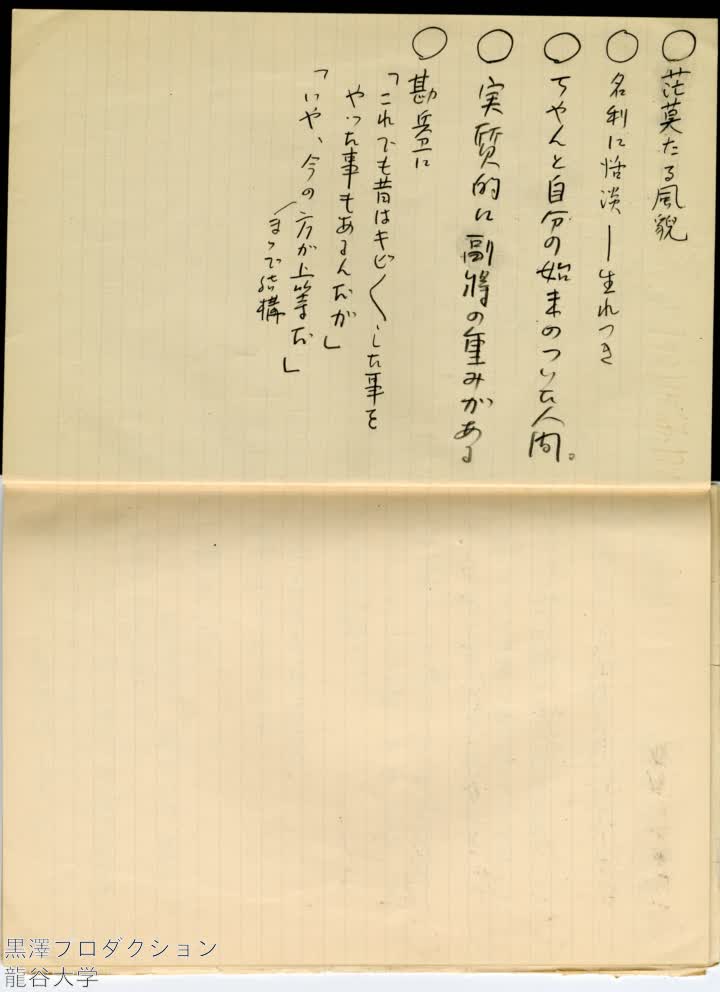 ○ 茫莫たる風貌
○ 名利に恬淡 ― 生れつき
○ ちやんと自分の始末のついた人間。
○ 実質的に副將の重みがある
○ 勘兵卫に
「これでも昔はキビ〱した事を
やつた事もあるんだが」
「いや、今の方が上等だ」
まつで結構
黒澤プロダクション
龍谷大学